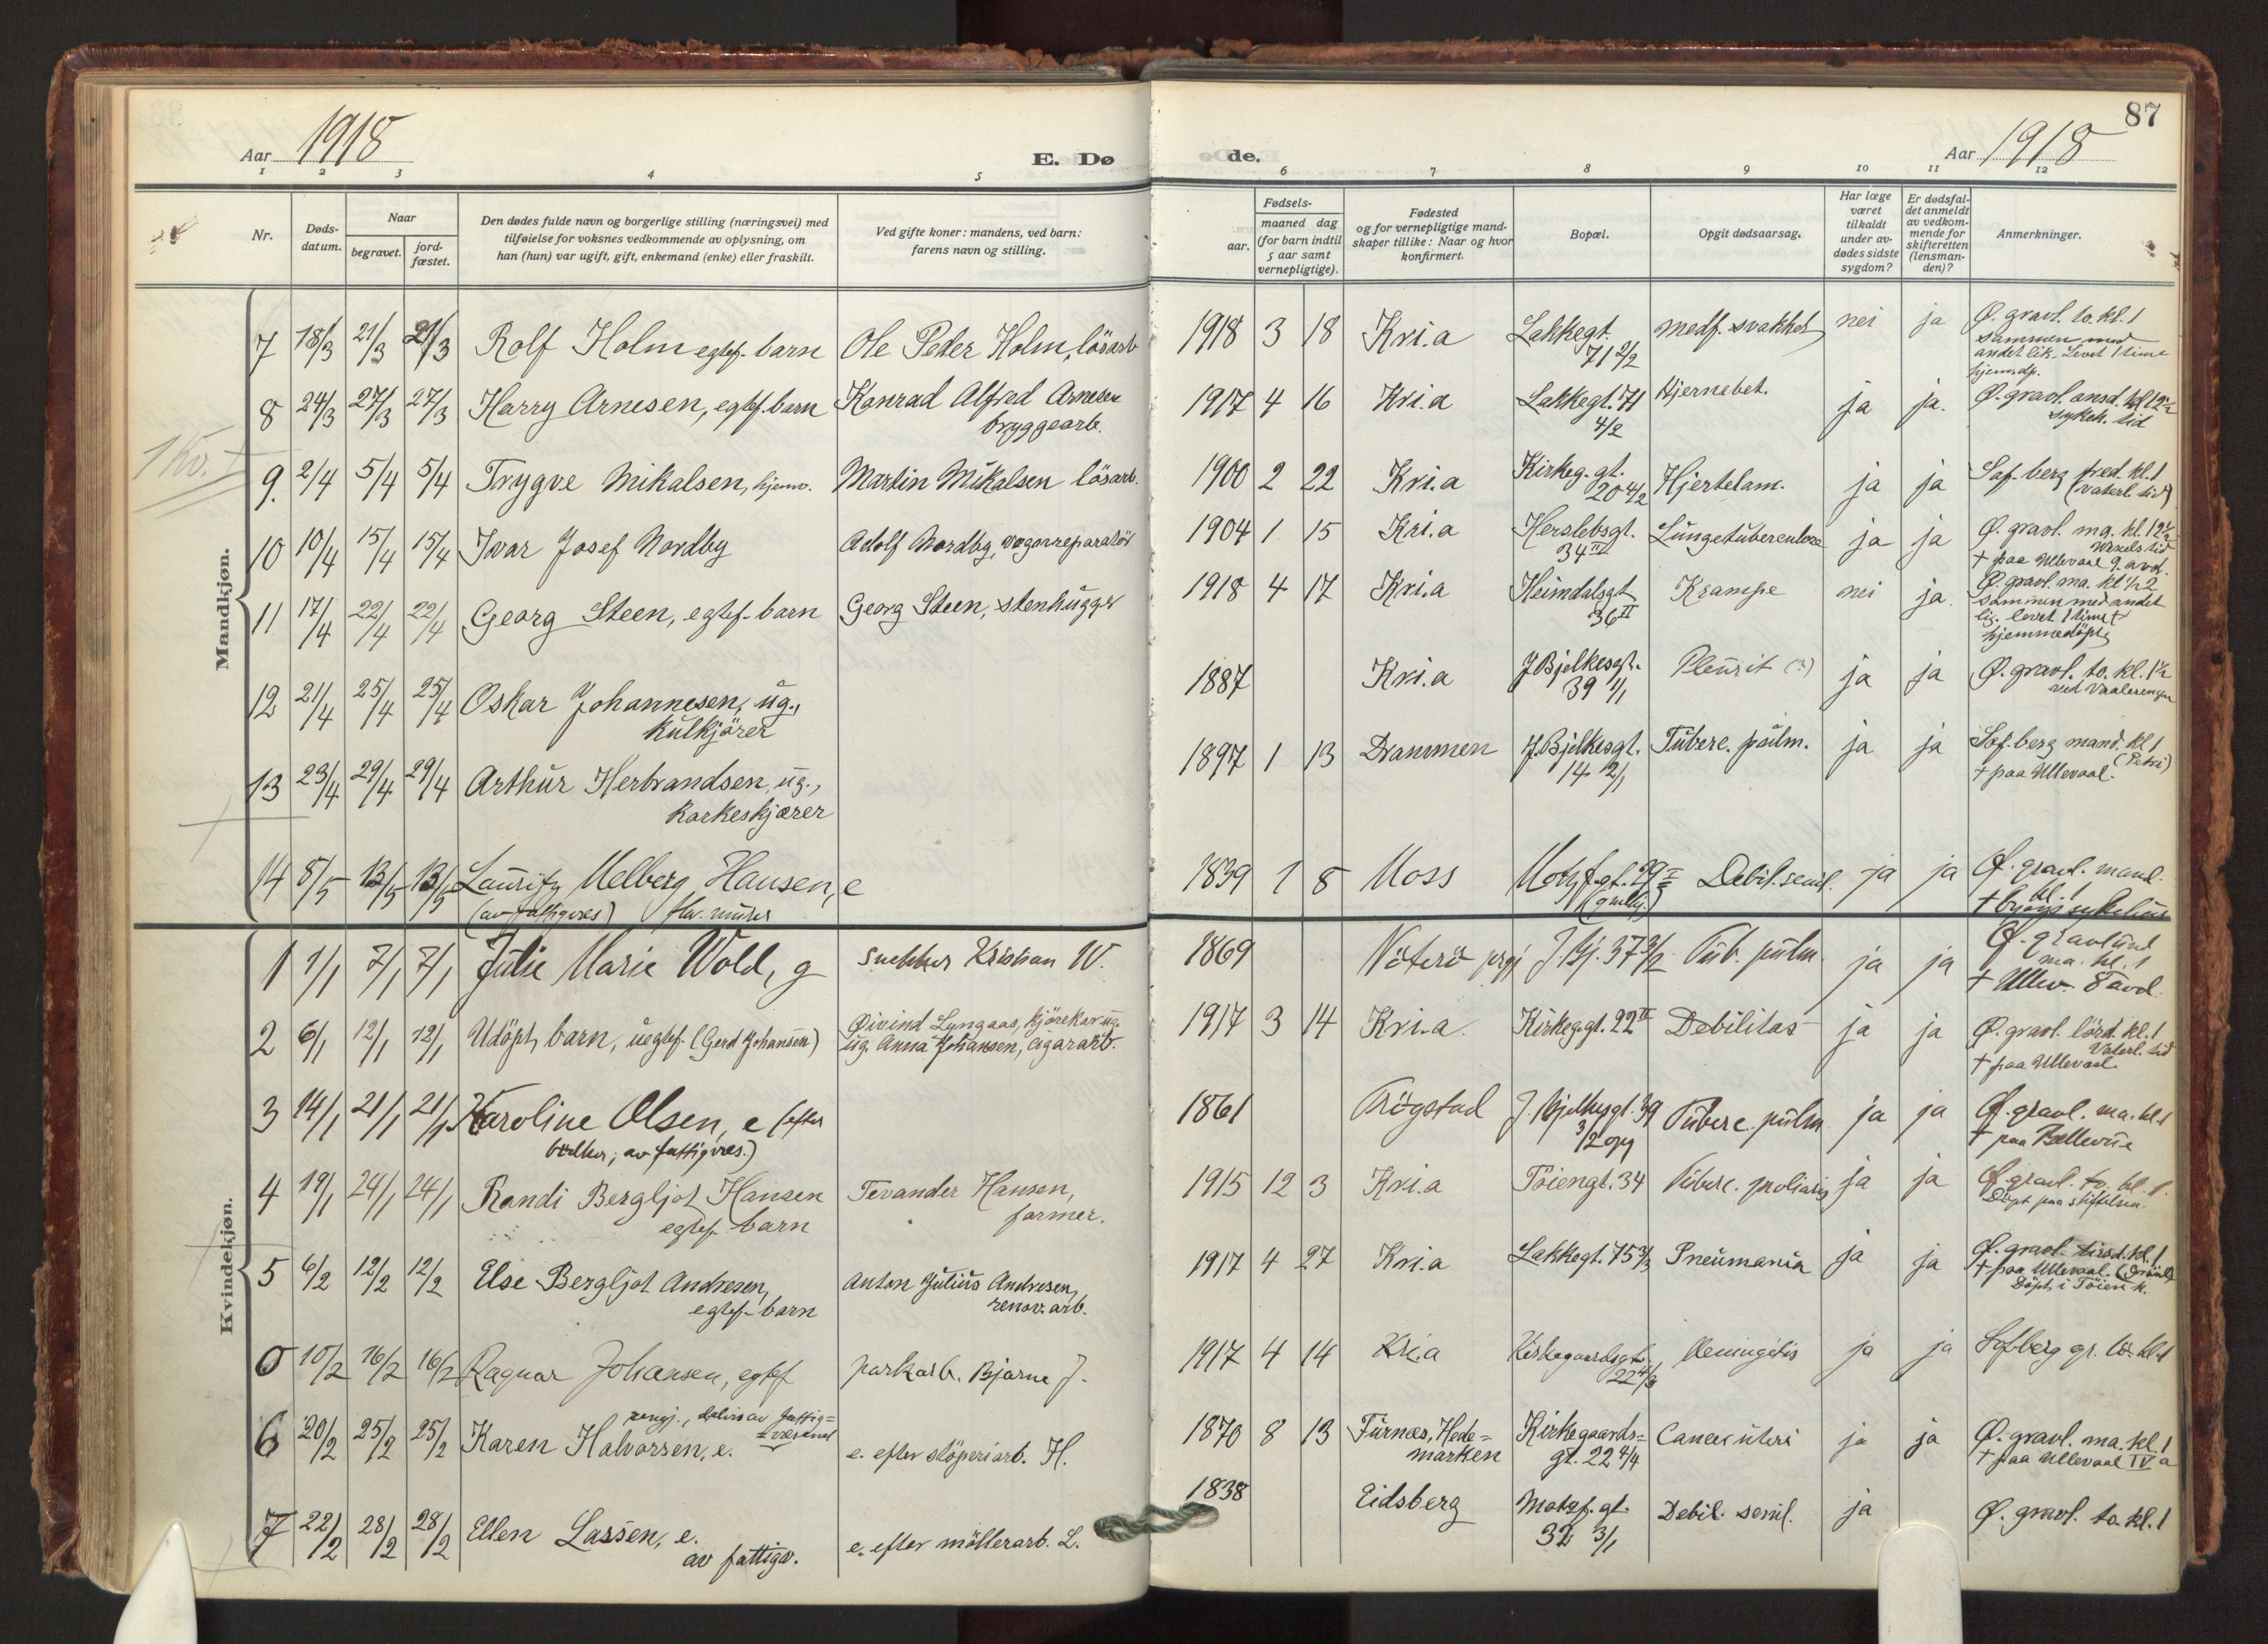 Aar 1918
E. Dø
de.
87
Aar 1918
1 2 3 4 5 6 7 8 9 10 11 12
Nr.
Døds-
datum.
Naar
begravet.
jord-
fæstet.
Den dødes fulde navn og borgerlige stilling (næringsvei) med
tilføielse for voksnes vedkommende av oplysning, om
han (hun) var ugift, gift, enkemand (enke) eller fraskilt.
Ved gifte koner: mandens, ved barn:
farens navn og stilling.
Fødsels-
aar.
maaned dag
(for barn indtil
5 aar samt
vernepligtige).
Fødested
og for vernepligtige mand-
skaper tillike: Naar og hvor
konfirmert.
Bopæl.
Opgit dødsaarsag.
Har læge
været
tilkaldt
under av-
dødes sidste
sygdom?
Er dødsfal-
det anmeldt
av vedkom-
mende for
skifteretten
(lensman-
den)?
Anmerkninger.
Mandkjøn.
7 18/3 21/3 21/3 Rolf Holm egtef. barn Ole Peder Holm, lösarb 1918 3 18 Kri.a Lakkegt. 71 2/2 medf. svakhet nei ja Ø. gravl. to. kl. 1
sammen med
andet lik. Levet 1 time
hjemdp.
8 24/3 27/3 27/3 Harry Arnesen, egtef. barn Konrad Alfred Arnesen
bryggearb. 1917 4 16 Kri.a Lakkegt. 71
4/2 Hjernebet. ja ja. Ø. gravl. onsd. kl 12½
sykeh. tid
9. 2/4 5/4 5/4 Trygve Mikalsen, hjemv. Martin Mikalsen lösarb. 1900 2 22 Kri.a Kirkeg. gt.
20 4/2 Hjertelam. ja ja Sof. berg fred. kl. 1
(Vaterl. tid)
10 10/4 15/4 15/4 Ivar Josef Nordby Adolf Nordby, vognreparatör 1904 1 15 Kri.a Herslebsgt.
34 II Lungetuberculose ja ja Ø. gravl. ma. kl. 12½
Wexels tid
† paa Ullevaal 9. avd.
11 17/4 22/4 22/4 Georg Steen, egtef. barn Georg Steen, stenhugger 1918 4 17 Kri.a Heimdalsgt
36 II Krampe nei ja. Ø. gravl. ma. kl ½ 2
sammen med andet
lig. levet 1 time
hjemmedöpt
12 21/4 25/4 25/4 Oskar Johannesen, ug.,
kulkjörer 1887 Kri.a J Bjelkesgt.
39 1/1 Pleurit (?) ja ja Ø. gravl. to. kl. 1½
ved Vaalerengen
13 23/4 29/4 29/4 Arthur Herbrandsen, ug.,
Korkeskjærer 1897 1 13 Drammen J. Bjelkesgt.
14 2/1 Tuberc. pulm. ja ja Sof. berg mand. kl 1
(Petri)
† paa Ullevaal.
14 8/5 13/5 13/5 Lauritz Melberg Hansen, e
(av fattigvæs) fhv. murer 1839 1 8 Moss Motzf. gt. 29 I Debil. senil. ja ja Ø. gravl. mand.
kl. 1
† byens sykehus
Kvindekjøn.
1 1/1 7/1 7/1 Julie Marie Wold, g snekker Kristian W. 1869 Nöterö prgj J. Bj. 37 3/2 Tub. pulm. ja ja Ø. gravlund
ma. kl. 1
† Ullev. 8 avd.
2 6/1 12/1 12/1 Udöpt barn, uegtef. (Gerd Johansen) Øivind Lyngaas, kjörekar ug.
ug. Anna Johansen, cigararb. 1917 3 14 Kri.a. Kirkeg.gt. 22 II Debilitas ja ja Ø. gravl. lörd. kl. 1
Vaterl. tid
† paa Ullevaal
3 14/1 21/1 21/1 Karoline Olsen, e (efter
; av fattigvæs.) 1861 Trögstad J. Bjelkesgt. 39
3/2 Tuberc. pulm ja ja Ø. gravl. ma. kl. 1
† paa Bellevue
4 19/1 24/1 24/1 Randi Bergljot Hansen
egtef. barn Tevander Hansen,
former. 1915 12 3 Kri.a Töiengt. 34 Tuberc. miliaris ja ja Ø. gravl. to. kl. 1.
Döpt paa stiftelsen.
5 6/2 12/2 12/2 Else Bergljot Andresen,
egtef. barn Anton Julius Andresen,
renov. arb. 1917 4 27 Kri.a Lakkegt. 75 3/3 Pneumonia ja ja Ø. gravl. tirsd. kl. 1
† paa Ullevaal. (Grönl)
Döpt i Töien k.
0 10/2 16/2 16/2 Ragnar Johansen, egtef parkarb. Bjarne J. 1917 4 14 Kri.a Kirkegaardsgt.
22 4/3 Meningitis ja ja Sofberg gr. lö. kl. 1
6 20/2 25/2 25/2 Karen Halvorsen, e. rengj., delvis av fattig=
=væsenet e. efter stöperiarb. H. 1870 8 13 Furnæs, Hede=
marken Kirkegaards=
gt. 22 4/4 Cancer uteri ja ja Ø. gravl. ma. kl. 1
† paa Ullevaal IV a
7 22/2 28/2 28/2 Ellen Lassen, e.
av fattigv. e. efter möllerarb. L. 1838 Eidsberg Motzf. gt.
32 3/1 Debil. senil. ja Ø. gravl. to. kl. 1